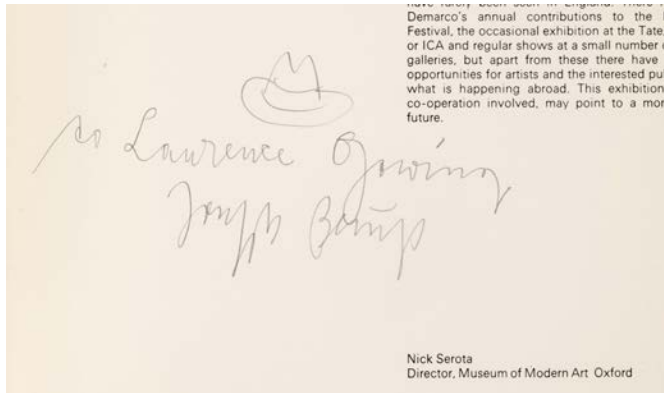 have rarely been seen in England. There
Demarco's annual contributions to the
Festival, the occasional exhibition at the Tate,
or ICA and regular shows at a small number
galleries, but apart from these there have
opportunities for artists and the interested pu
what is happening abroad. This exhibition
co-operation involved, may point to a mor
future.
to Lawrence Gowing
Joseph Beuys
Nick Serota
Director, Museum of Modern Art Oxford